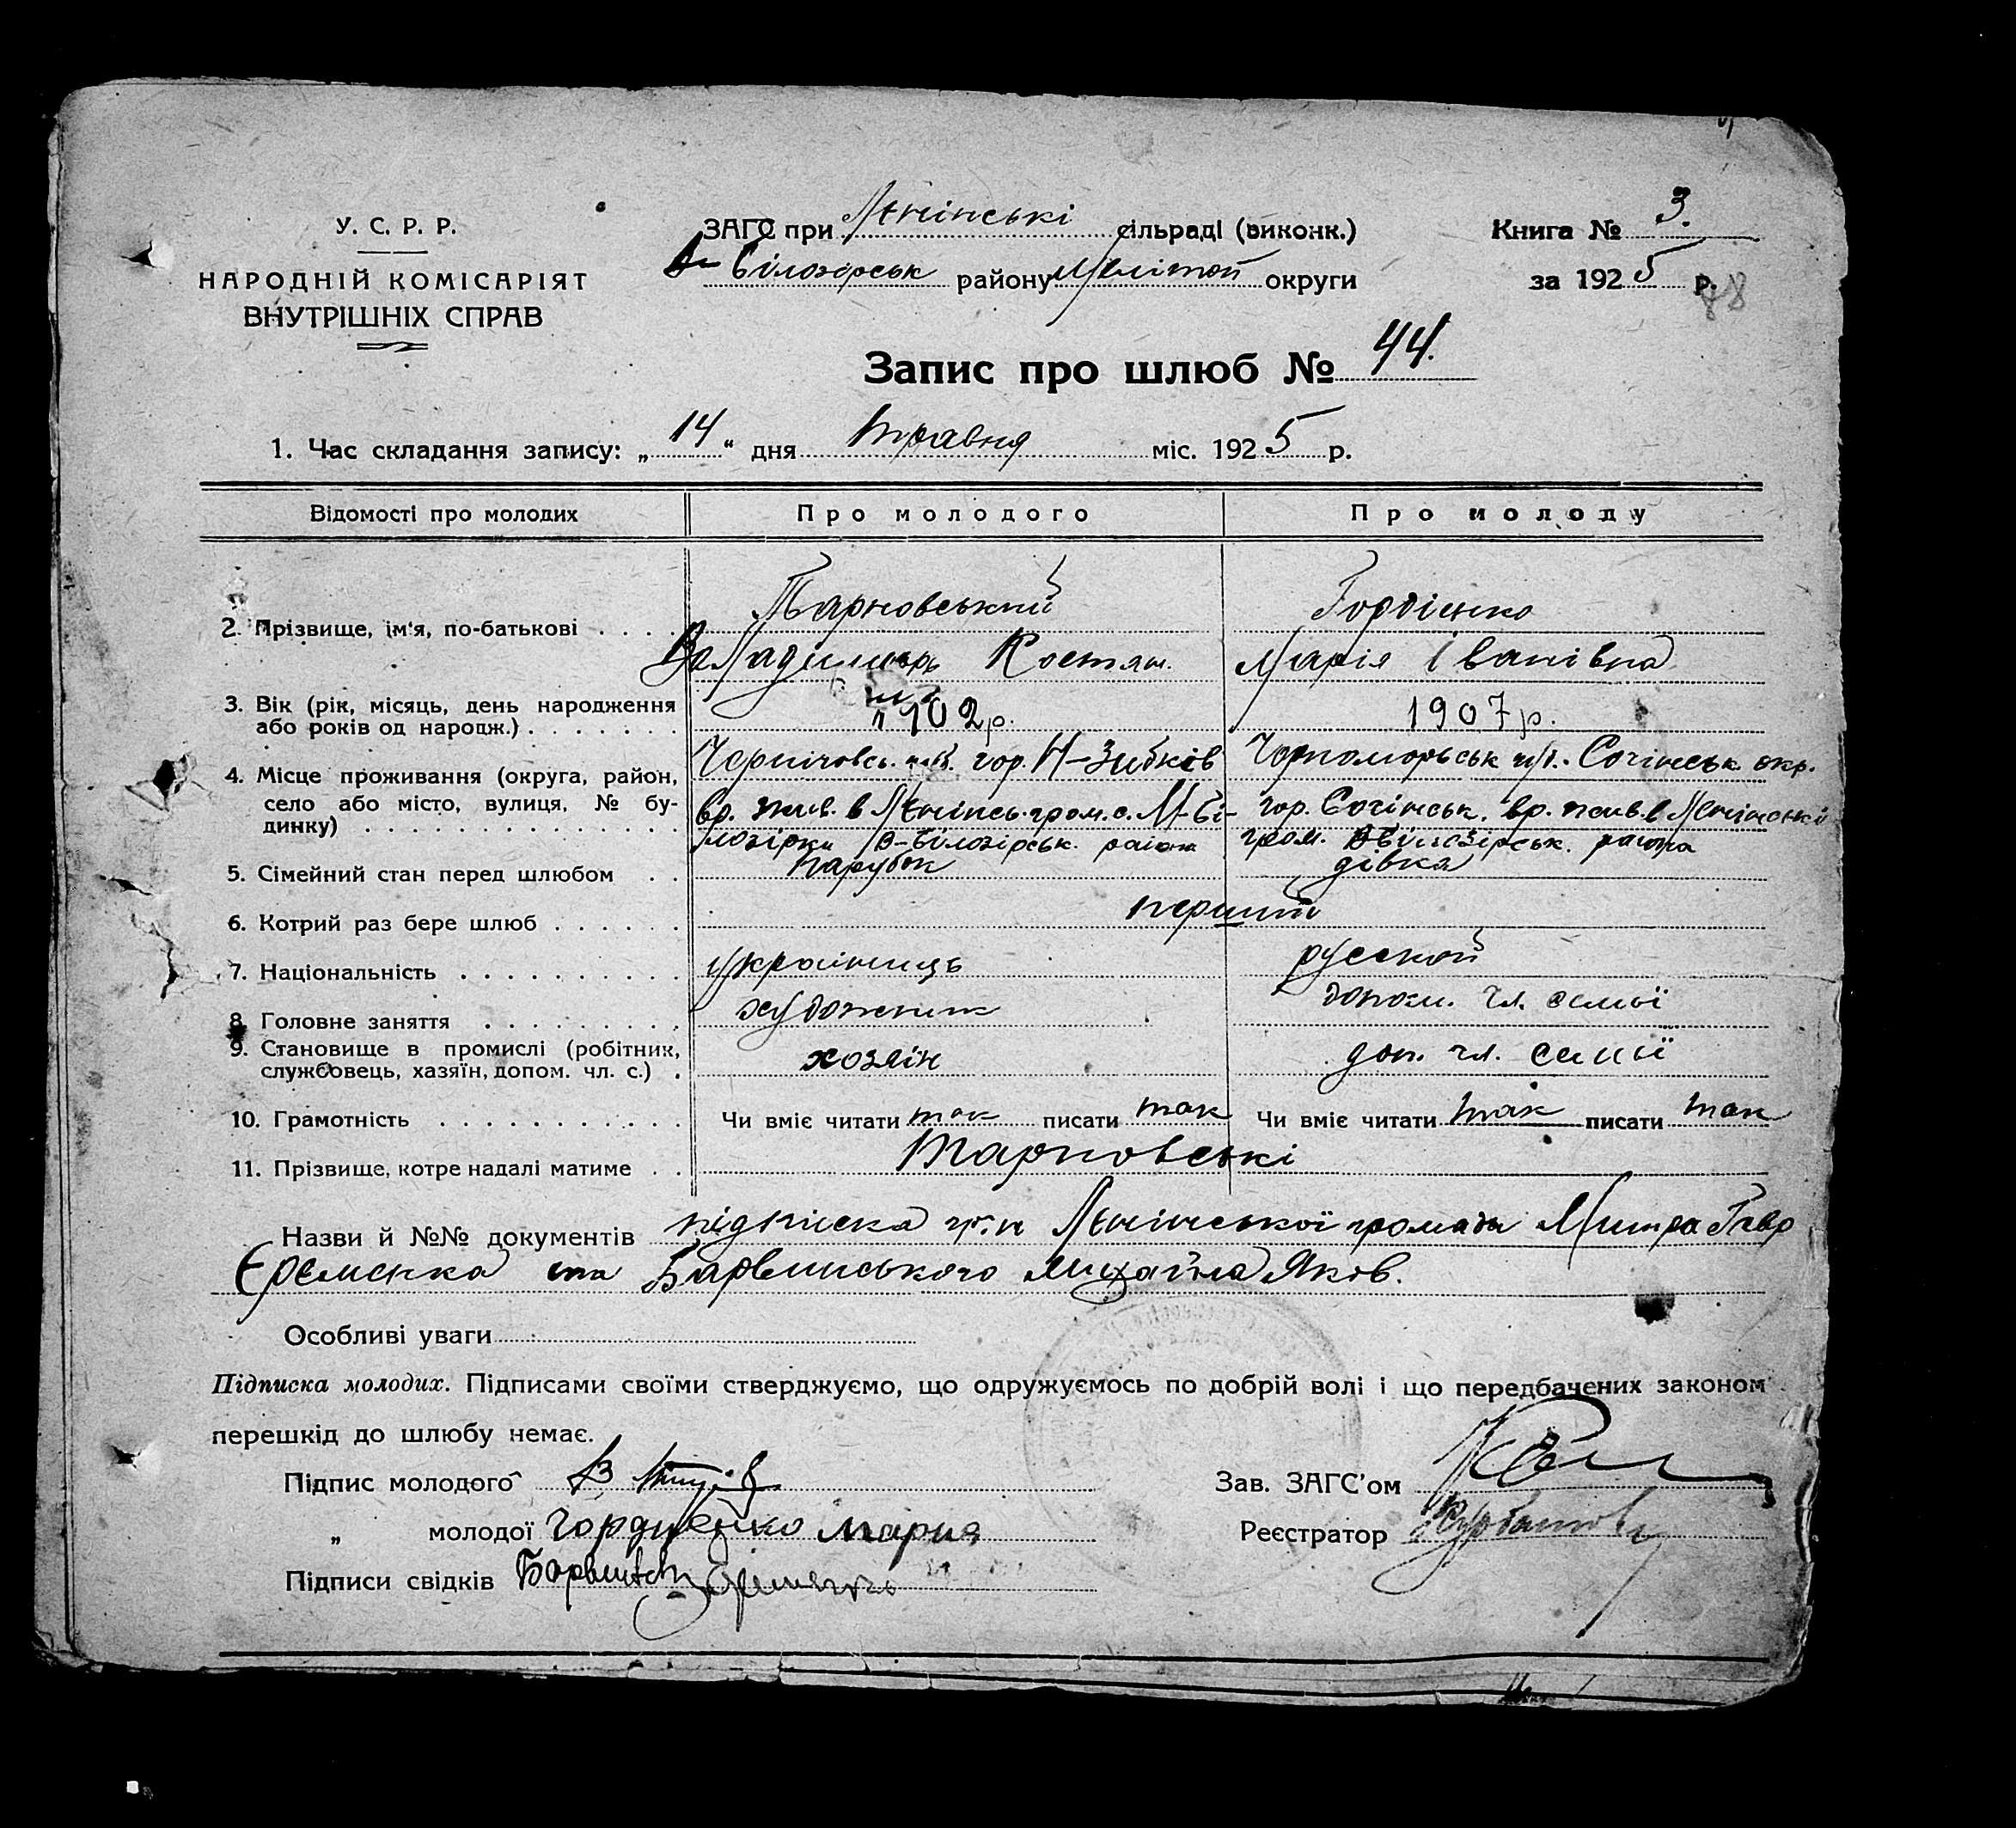 У. С. Р. Р.
НАРОДНІЙ КОМІСАРІЯТ
ВНУТРІШНІХ СПРАВ
ЗАГС при Ленінські сільраді (виконк.)
В-Білозірськ району Меліт округи
Книга № 3.
за 1925 р.
88
Запис про шлюб № 44.
1. Час складання запису: „14" дня травня міс. 1925 р.
Відомості про молодих Про молодого Про молоду
2. Прізвище, ім'я, по-батькові . . . . Тарновський Гордієнко
Владимир Костян. Марія Іванівна
3. Вік (рік, місяць, день народження
або років од народж.) . . . . . . . 1902 р. 1907 р.
4. Місце проживання (округа, район,
село або місто, вулиця, № бу-
динку) . . . . . . . . . . . . . .
Черніговсь. губ. гор. Н-Зибків
вр. жив. в Ленінсь. гром. с. М-Бі-
лозірки В-Білозірськ. района
Чорноморськ Сочінськ окр.
гор. Сочінськ. вр. жив. в Ленінські
гром. ВБілозірськ. района
5. Сімейний стан перед шлюбом . . парубок дівка
6. Котрий раз бере шлюб . . . . . . перший
7. Національність . . . . . . . . . . українець русской
8. Головне заняття . . . . . . . . . художник допом. чл. семьї
9. Становище в промислі (робітник,
службовець, хазяїн, допом. чл. с.) . хозяїн доп. чл. семьї
10. Грамотність . . . . . . . . . . . Чи вміє читати так писати так Чи вміє читати так писати так
11. Прізвище, котре надалі матиме . . Тарновські
Назви й №№ документів підписка гр.н Ленінської громади Митра Гавр
Єременка та Барвинського Михайла Яков.
Особливі уваги
Підписка молодих. Підписами своїми стверджуємо, що одружуємось по добрій волі і що передбачених законом
перешкід до шлюбу немає.
Підпис молодого В
Зав. ЗАГС'ом
„ молодої Гордиенко Мария
Реєстратор
Підписи свідків